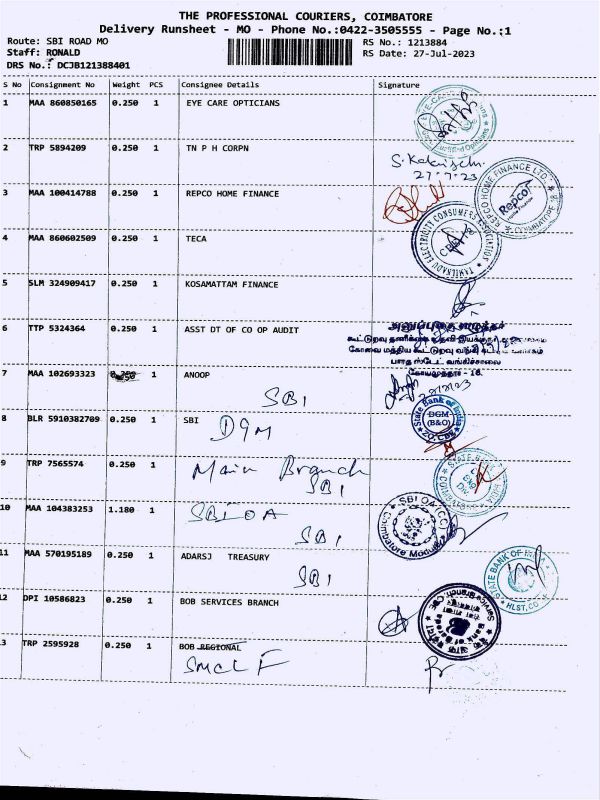 THE PROFESSIONAL COURIERS, COIMBATORE
Delivery Runsheet - MO - Phone No.:0422-3505555 - Page No.:1
Route: SBI ROAD MO
RS No.: 1213884
Staff: RONALD
RS Date: 27-Jul-2023
DRS No.: DCJB121388401
S No Consignment No Weight PCS Consignee Details Signature
1 MAA 860850165 0.250 1 EYE CARE OPTICIANS
2 TRP 5894209 0.250 1 TN P H CORPN
27.7.23
3 MAA 100414788 0.250 1 REPCO HOME FINANCE
REPCO HOME FINANCE LTD
Repco
COIMBATORE
4 MAA 860602509 0.250 1 TECA
TAMILNADU ELECTRICITY CONSUMERS ASSOCIATION
5 SLM 324909417 0.250 1 KOSAMATTAM FINANCE
6 TTP 5324364 0.250 1 ASST DT OF CO OP AUDIT
7 MAA 102693323 0.250 1 ANOOP
SBI
State Bank of India
DGM
(B&O)
ZO, CBE
8 BLR 5910382709 0.250 1 SBI
DGM
9 TRP 7565574 0.250 1
Main Branch
SBI
10 MAA 104383253 1.180 1 SBIOA
SBI
SBI OA (CC)
Coimbatore Module
11 MAA 570195189 0.250 1 ADARSJ TREASURY
SBI
STATE BANK OF INDIA
12 DPI 10586823 0.250 1 BOB SERVICES BRANCH
Bank of Baroda
Service Branch, CBE
13 TRP 2595928 0.250 1 BOB REGIONAL